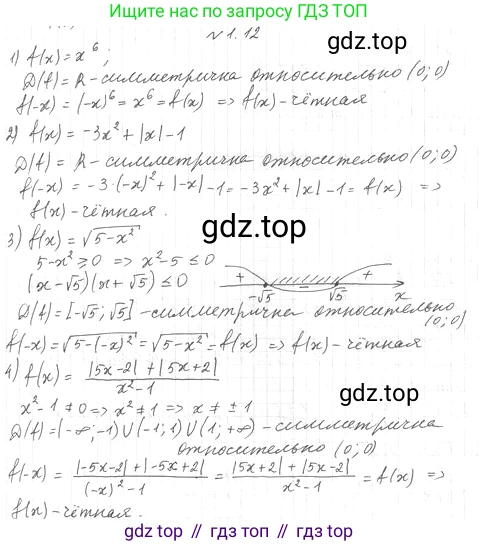 Ищите нас по запросу ГДЗ ТОП
№1.12
gdz.top
1) f(x) = x⁶;
D(f) = R - симметрична относительно (0; 0)
f(-x) = (-x)⁶ = x⁶ = f(x) => f(x) - чётная
2) f(x) = -3x² + |x| - 1
D(f) = R - симметрична относительно (0; 0)
f(-x) = -3·(-x)² + |-x| - 1 = -3x² + |x| - 1 = f(x) =>
f(x) - чётная.
gdz.top
3) f(x) = √(5-x²)
5-x² ≥ 0 => x²-5 ≤ 0
(x-√5)(x+√5) ≤ 0
+ - +
-√5 √5 x
D(f) = [-√5; √5] - симметрична относительно (0; 0)
f(-x) = √(5-(-x)²) = √(5-x²) = f(x) => f(x) - чётная
4) f(x) = (|5x-2| + |5x+2|)/(x²-1)
gdz.top
x²-1 ≠ 0 => x² ≠ 1 => x ≠ ±1
D(f) = (-∞; -1) ∪ (-1; 1) ∪ (1; +∞) - симметрична
относительно (0; 0)
f(-x) = (|-5x-2| + |-5x+2|)/((-x)²-1) = (|5x+2| + |5x-2|)/(x²-1) = f(x) =>
f(x) - чётная.
gdz.top
gdz top // гдз топ // гдз.топ